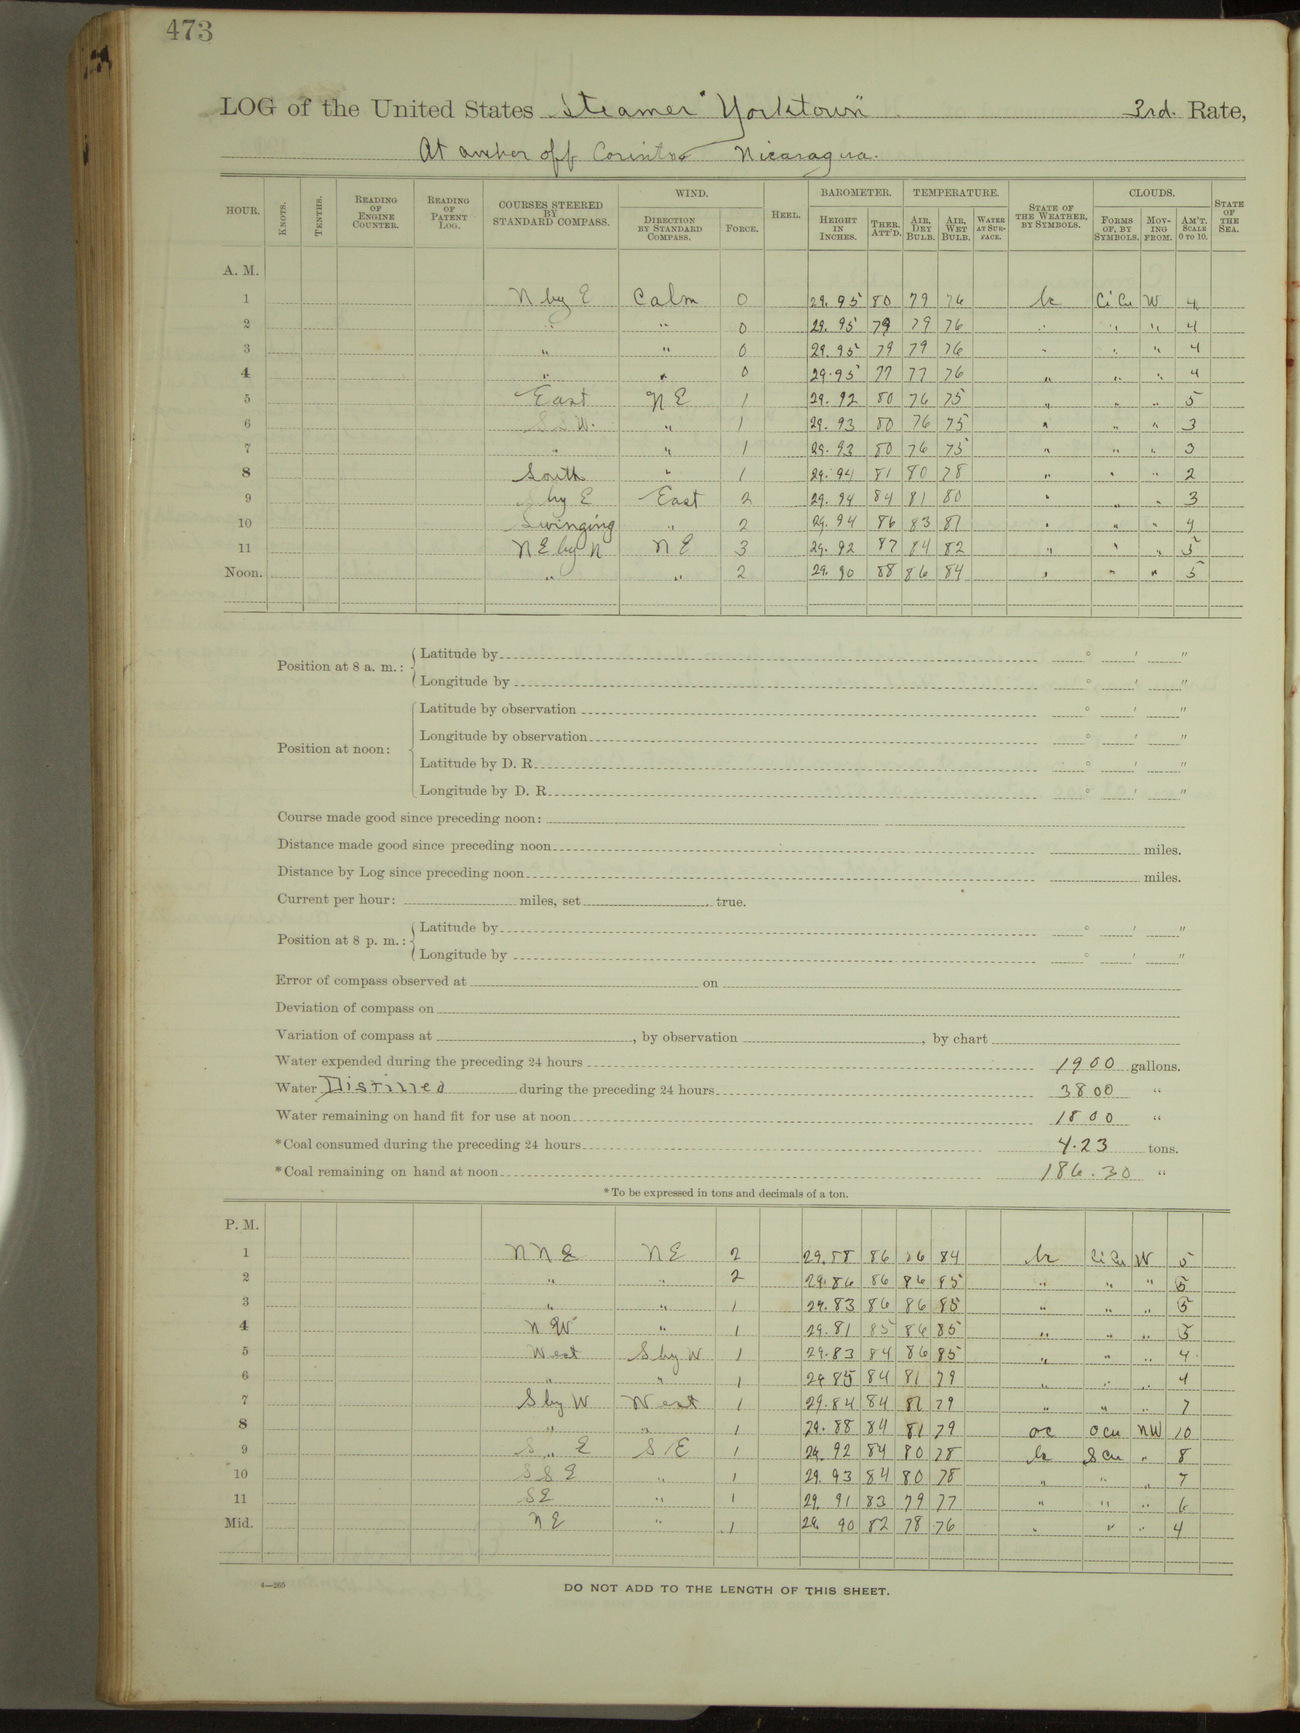 473
LOG of the United States Steamer "Yorktown" 3rd. Rate,
At anchor off Corinto Nicaragua.
HOUR. KNOTS. TENTHS. READING OF ENGINE COUNTER. READING OF PATENT LOG. COURSES STEERED BY STANDARD COMPASS. WIND. DIRECTION BY STANDARD COMPASS. FORCE. HEEL. BAROMETER. HEIGHT IN INCHES. THER. ATT'D. TEMPERATURE. AIR, DRY BULB. AIR, WET BULB. WATER AT SURFACE. STATE OF THE WEATHER, BY SYMBOLS. CLOUDS. FORMS OF, BY SYMBOLS. MOVING FROM. AM'T. SCALE 0 TO 10. STATE OF THE SEA.
A. M.
1 N by E Calm 0 29.95 80 79 76 bc Ci Cu W 4
2 " " 0 29.95 79 79 76 " " " 4
3 " " 0 29.95 79 79 76 " " " 4
4 " " 0 29.95 77 77 76 " " " 4
5 East NE 1 29.92 80 76 75 " " " 5
6 SSW. " 1 29.93 80 76 75 " " " 3
7 " " 1 29.93 80 76 75 " " " 3
8 South " 1 29.94 81 80 78 " " " 2
9 S by E East 2 29.94 84 81 80 " " " 3
10 Swinging " 2 29.94 86 83 81 " " " 4
11 NE by N NE 3 29.92 87 84 82 " " " 5
Noon. " " 2 29.90 88 86 84 " " " 5
Position at 8 a. m.: Latitude by ° ′ ″
Longitude by ° ′ ″
Latitude by observation ° ′ ″
Position at noon: Longitude by observation ° ′ ″
Latitude by D. R. ° ′ ″
Longitude by D. R. ° ′ ″
Course made good since preceding noon:
Distance made good since preceding noon miles.
Distance by Log since preceding noon miles.
Current per hour: miles, set true.
Position at 8 p. m.: Latitude by ° ′ ″
Longitude by ° ′ ″
Error of compass observed at on
Deviation of compass on
Variation of compass at , by observation , by chart
Water expended during the preceding 24 hours 1900 gallons.
Water Distilled during the preceding 24 hours 3800 "
Water remaining on hand fit for use at noon 1800 "
*Coal consumed during the preceding 24 hours 4.23 tons.
*Coal remaining on hand at noon 186.30 "
*To be expressed in tons and decimals of a ton.
P. M.
1 NNE NE 2 29.88 86 86 84 bc Ci Cu W 5
2 " " 2 29.86 86 86 85 " " " 5
3 " " 1 29.83 86 86 85 " " " 5
4 NW " 1 29.81 85 86 85 " " " 5
5 West S by W 1 29.83 84 86 85 " " " 4
6 " " 1 29 85 84 81 79 " " " 4
7 S by W West 1 29.84 84 81 79 " " " 7
8 " " 1 29.88 84 81 79 oc o cu NW 10
9 S " E SE 1 29.92 84 80 78 bc S cu " 8
10 SSE " 1 29.93 84 80 78 " " " 7
11 SE " 1 29.91 83 79 77 " " " 6
Mid. NE " 1 29.90 82 78 76 " " " 4
4—265 DO NOT ADD TO THE LENGTH OF THIS SHEET.